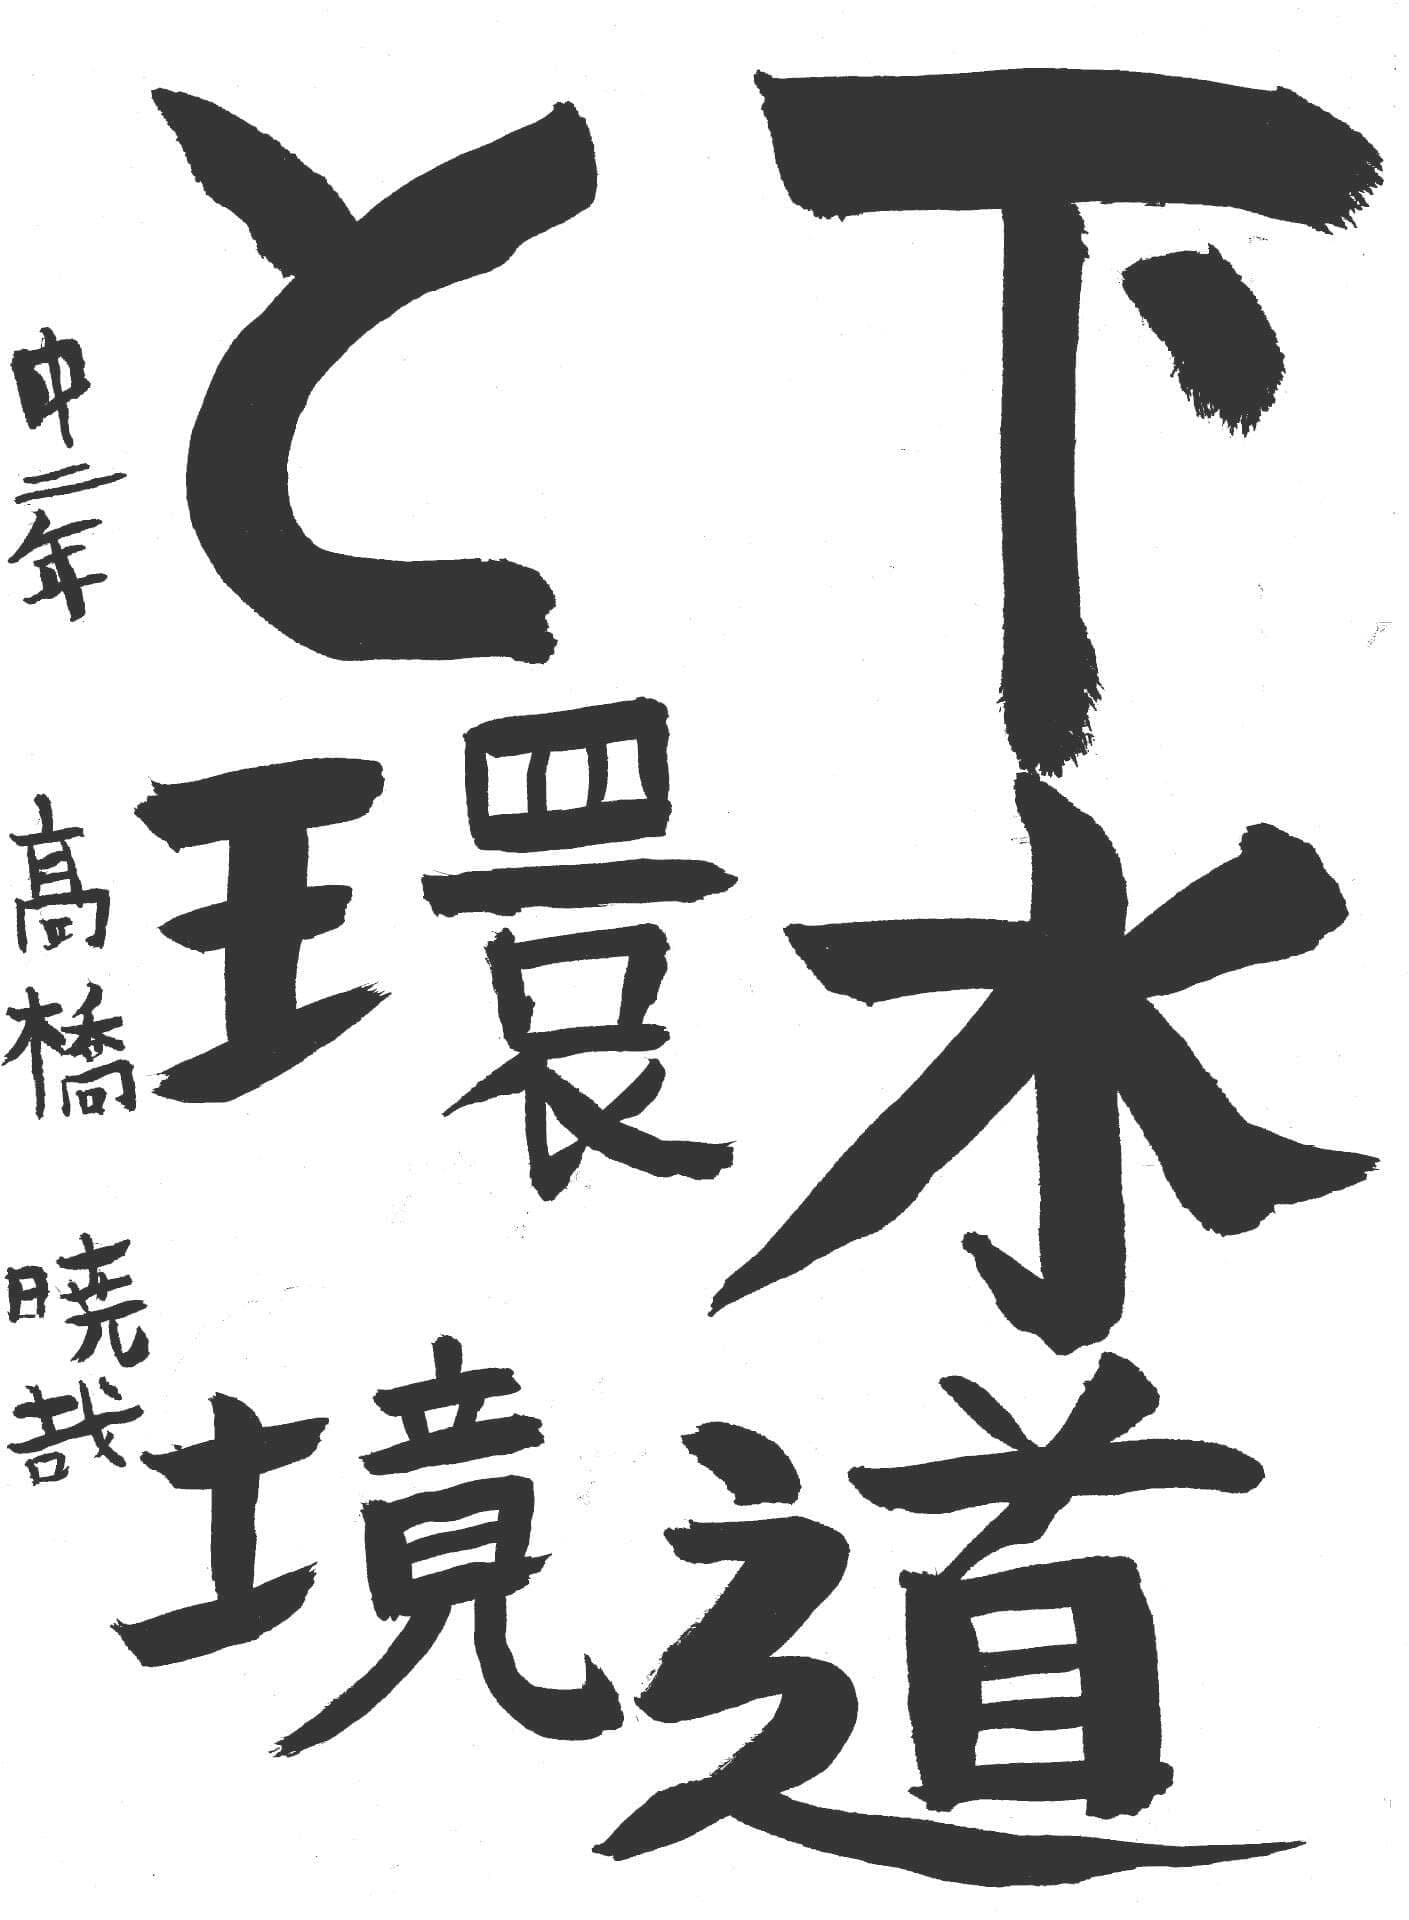 下水道
と環境
中二年 髙橋 暁哉